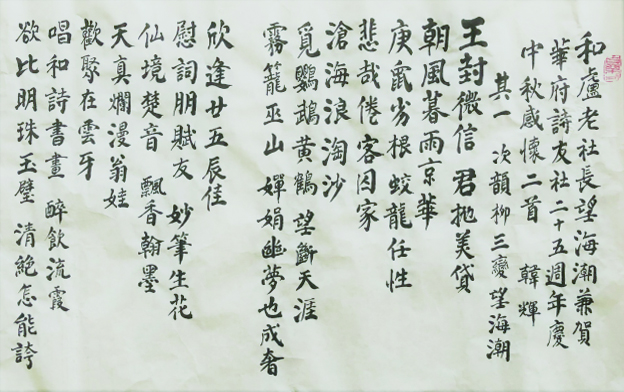 和盧老社長望海潮兼賀
華府詩友社二十五週年慶
中秋感懷二首 韓輝
其一 次韻柳三變望海潮
王封微信 君抛美貸
朝風暮雨京華
庚鼠劣根 蛟龍任性
悲哉倦客囚家
滄海浪淘沙
覓鸚鵡黄鶴 望斷天涯
霧籠巫山 嬋娟幽夢也成奢
欣逢廿五辰佳
慰詞朋賦友 妙筆生花
仙境楚音 飄香翰墨
天真爛漫翁娃
歡聚在雲牙
唱和詩書畫 醉飲流霞
欲比明珠玉璧 清絶怎能誇